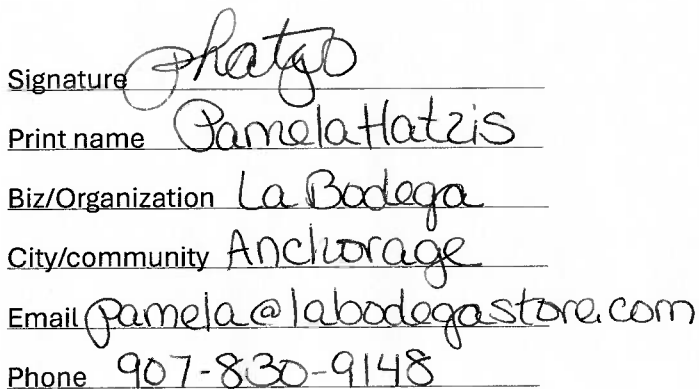 Signature
Print name Pamela Hatzis
Biz/Organization La Bodega
City/community Anchorage
Email pamela@labodegastore.com
Phone 907-830-9148